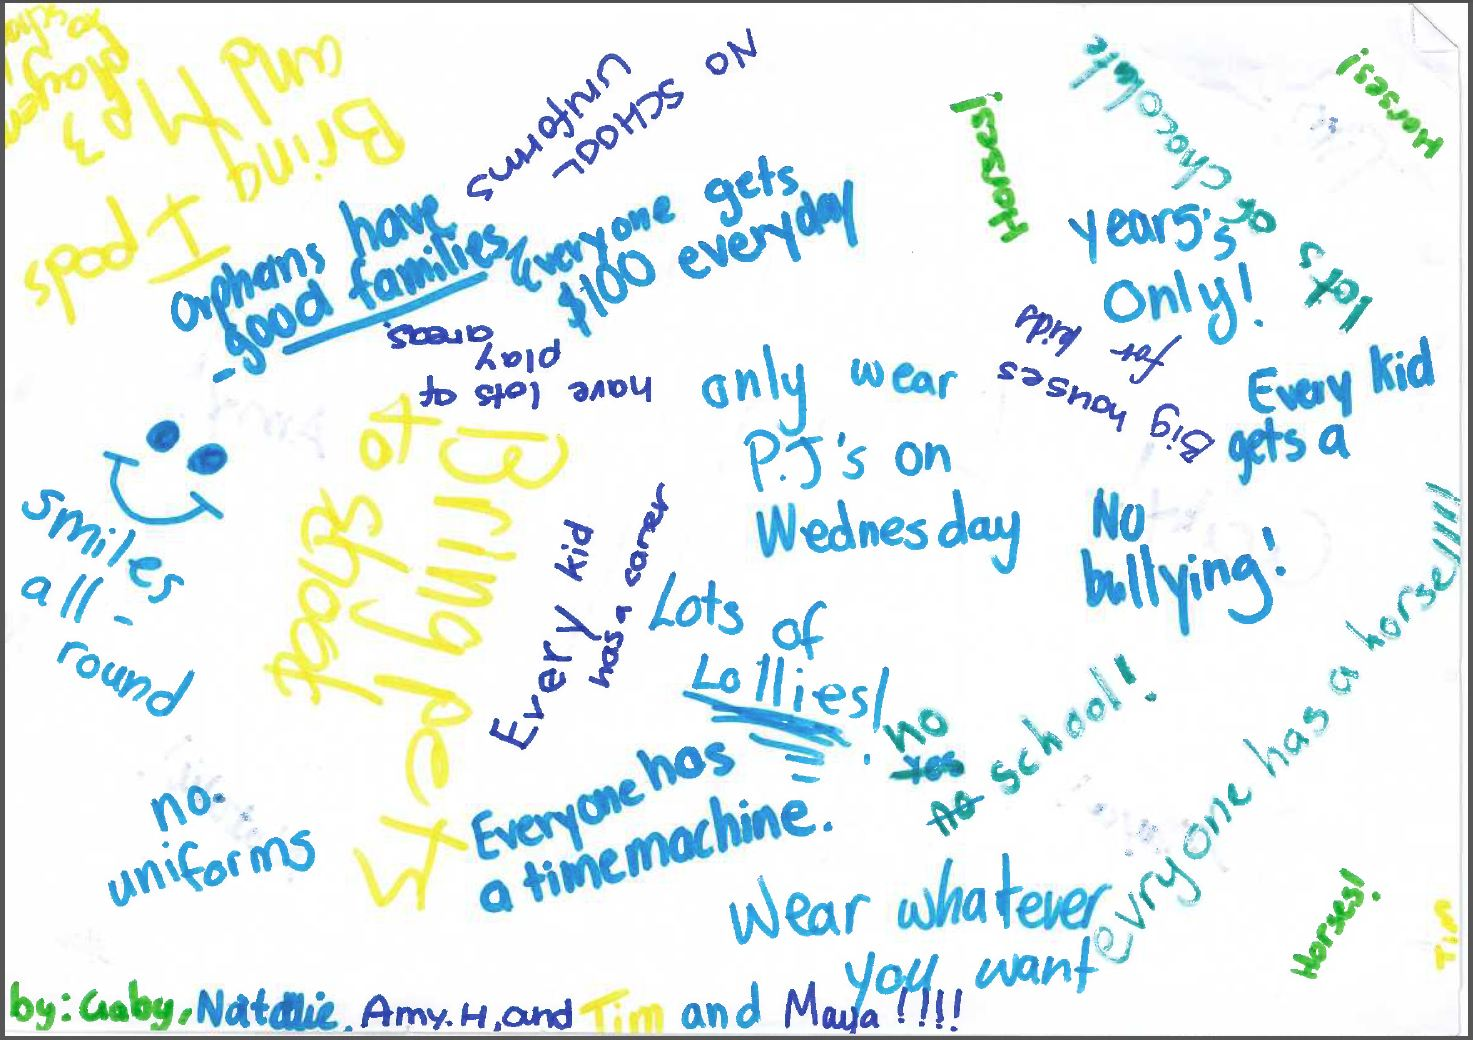 Bring
and M
p3
players
I pods
NO SCHOOL
uniforms
orphans have
- good families
Everyone gets
$100 everyday
have lots of
play
areas.
Horses!
lots of chocolate
Horses!
years's
only!
Big houses
for kids
Every kid
gets a
only wear
P.J's on
Wednesday
No
bullying!
smiles
all -
round
Bring pets
to
school
Every kid
has a carer
Lots of
Lollies!
no
yes
no school!
evryone has a horse!!!!
Everyone has
a time machine.
no
uniforms
Wear whatever
you want
Horses!
Tim
by: Gaby, Natalie, Amy.H, and Tim and Maya !!!!